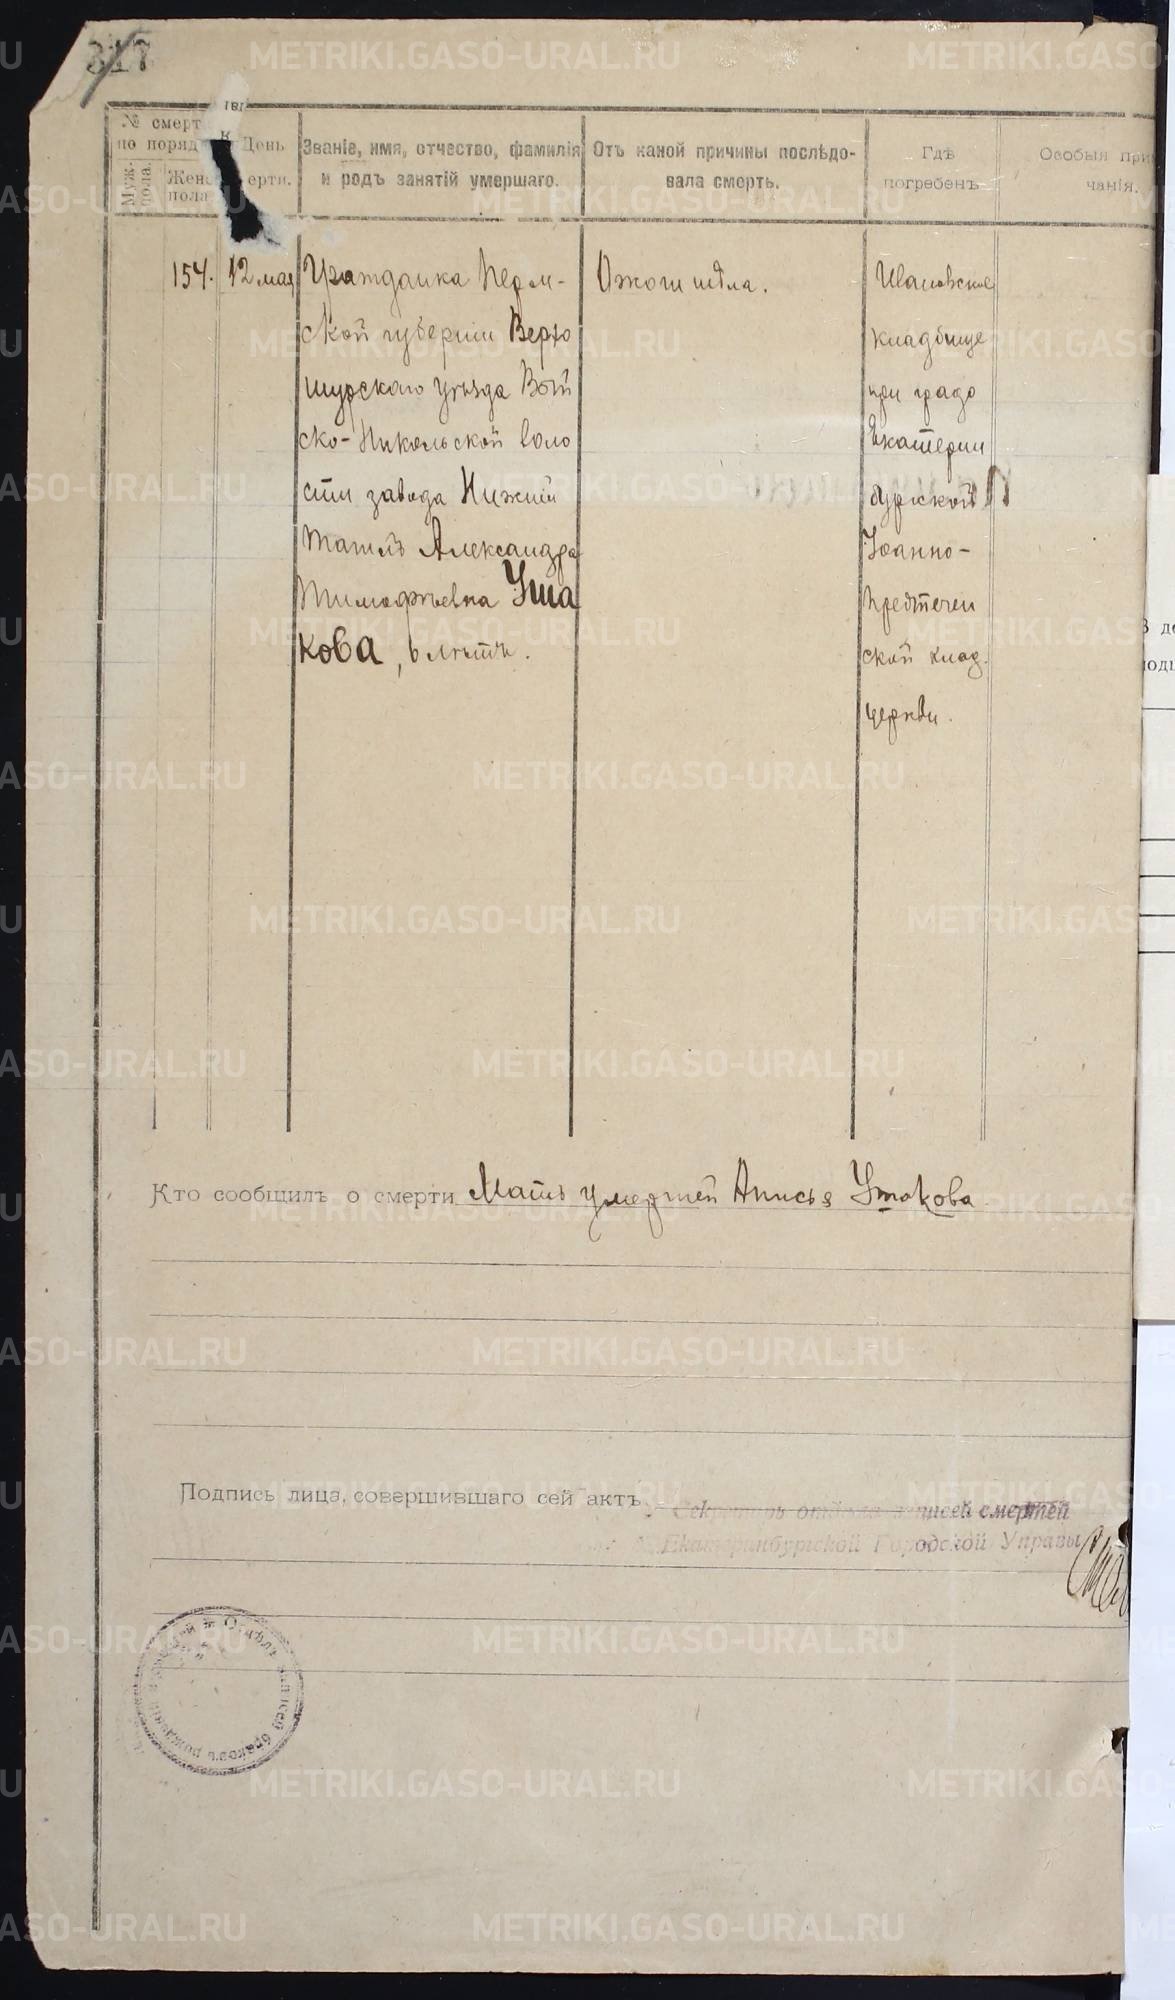 317
№ смерт
по поряд
Муж. пола.
Жен. пола
День
ерти.
Званіе, имя, отчество, фамилія
и родъ занятій умершаго.
Отъ какой причины послѣдо-
вала смерть.
Гдѣ
погребенъ
Особыя при
чанія.
154.
12 мая
Гражданка Перм-
ской губерніи Верхо
турскаго уѣзда
ско-Никольской воло
сти завода Нижній
Тагилъ Александра
Тимофѣевна Уша
кова, 6 лѣтъ.
Ожоги тѣла.
Ивановское
кладбище
при градо
Екатерин
бургской
Іоанно-
Предтечен
ской клад.
церкви.
Кто сообщилъ о смерти Мать умершей Анисья Ушакова
Подпись лица, совершившаго сей актъ
Секретарь отдѣла записей смертей
Екатеринбургской Городской Управы
Отдѣлъ записей браковъ рожденій
METRIKI.GASO-URAL.RU